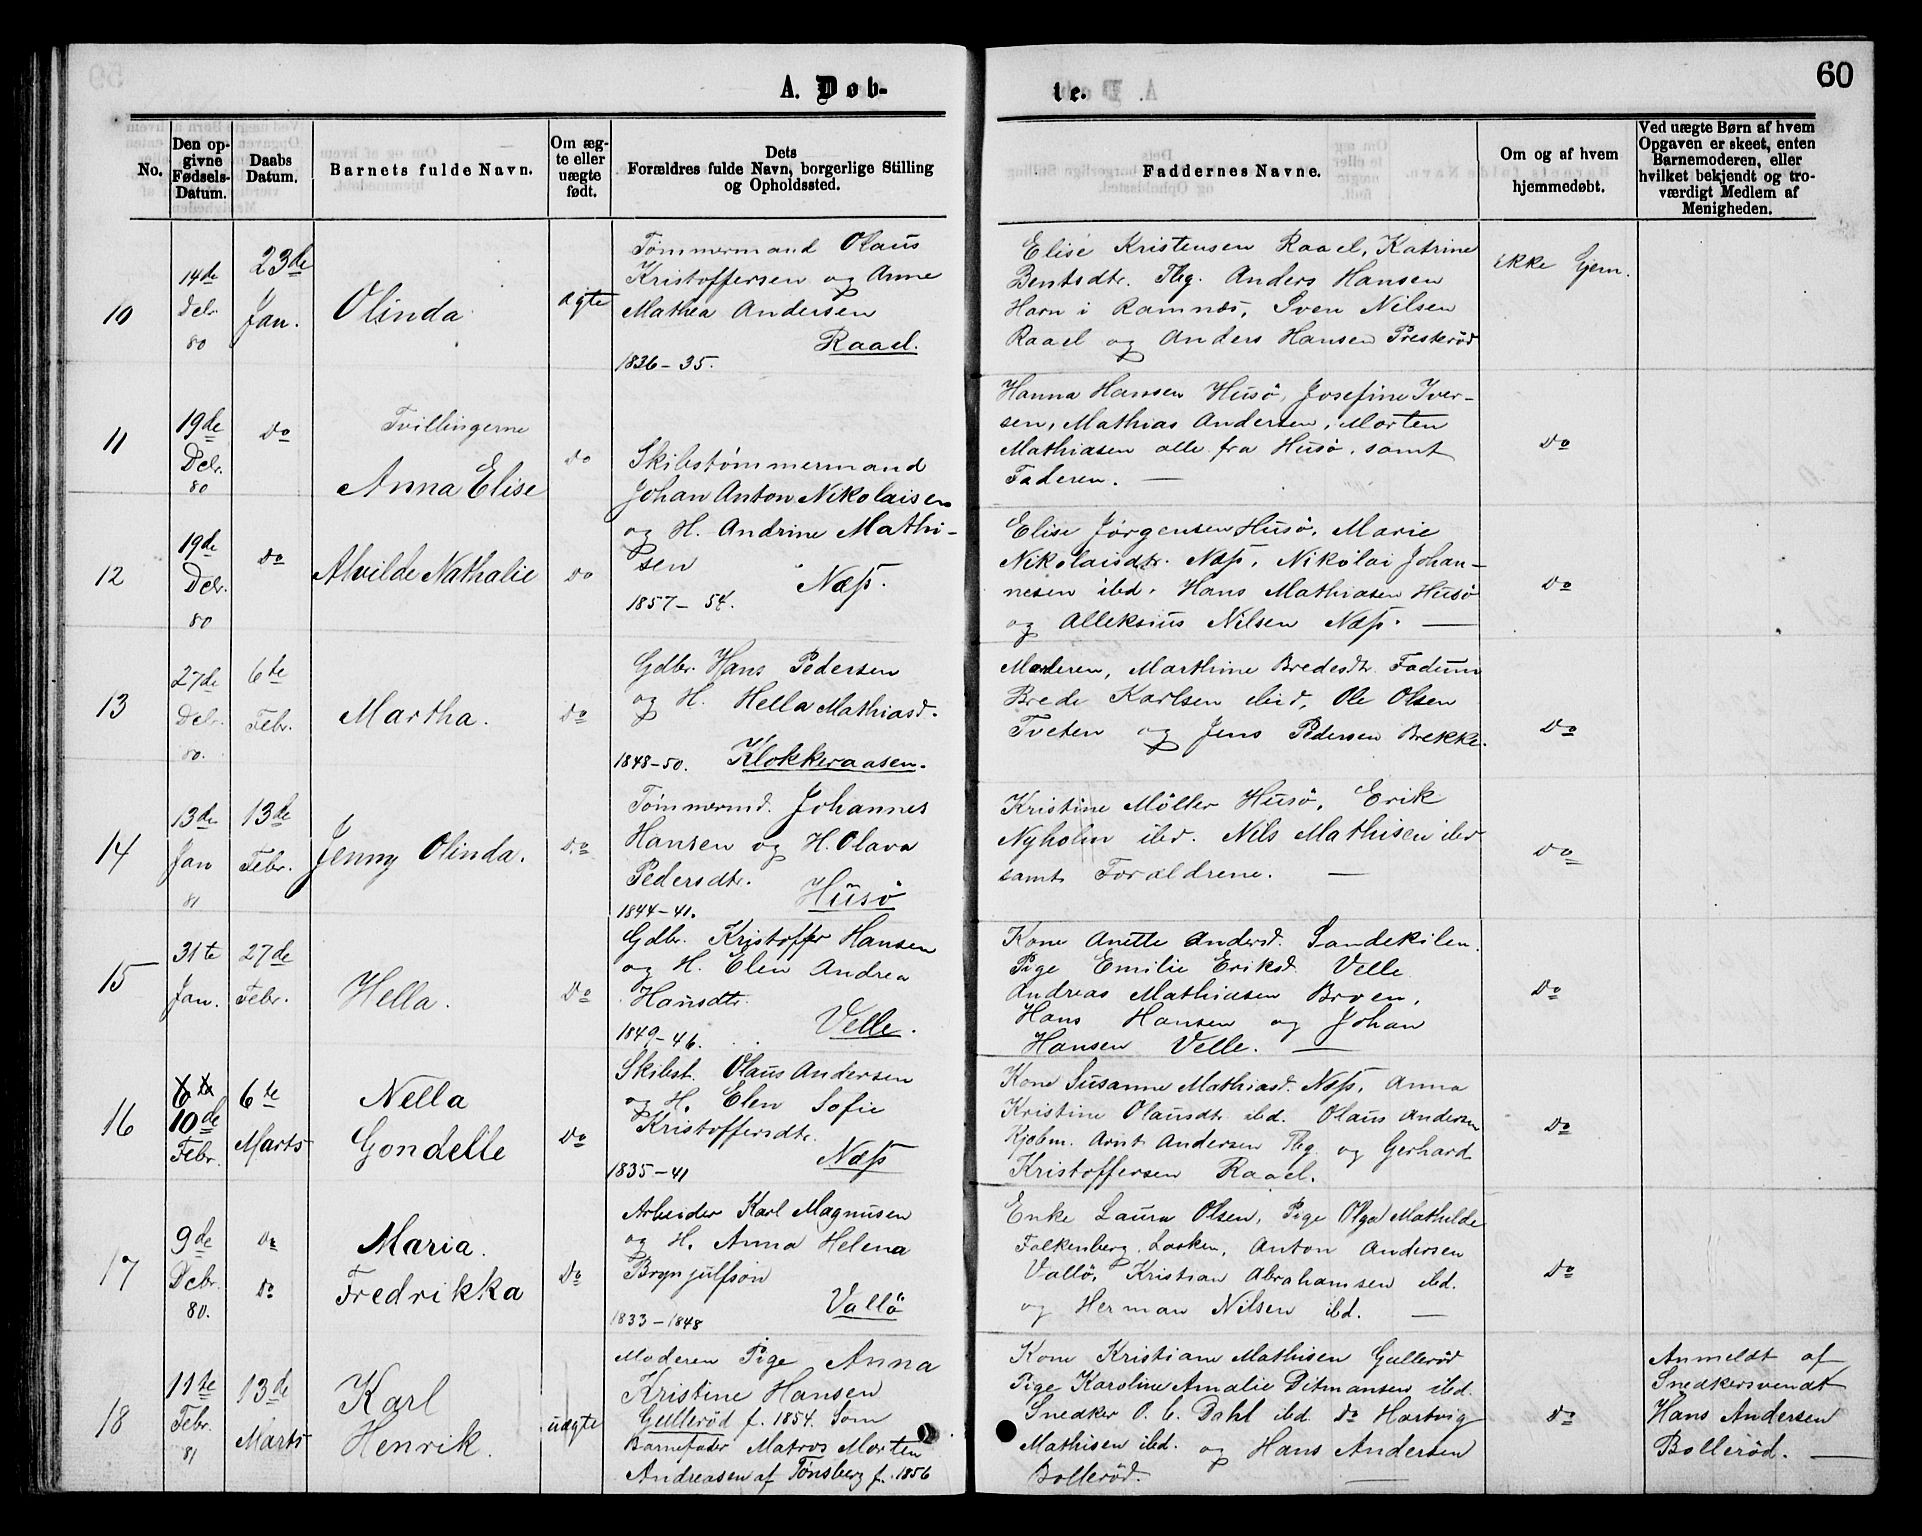 A. Døb-
te.
60
No.
Den op-
givne
Fødsels-
Datum.
Daabs
Datum.
Barnets fulde Navn.
Om æg-
te eller
uægte
født.
Dets
Forældres fulde Navn, borgerlige Stilling
og Opholdssted.
Faddernes Navne.
Om og af hvem
hjemmedøbt.
Ved uægte Børn af hvem
Opgaven er skeet, enten
Barnemoderen, eller
hvilket bekjendt og tro-
værdigt Medlem af
Menigheden.
10
14de
Debr.
80
23de
Jan.
Olinda
ægte
Tømmermand Olaus
Kristoffersen og Anne
Mathea Andersen
Raael.
1836-35.
Elise Kristensen Raael, Katrine
Bentsdtr. Tbg. Anders Hansen
Horn i Ramnæs, Sven Nilsen
Raael og Anders Hansen Presterød
ikke hjem.
11
19de
Debr.
80
do
Tvillingerne
Anna Elise
do
Skibstømmermand
Johan Anton Nikolaisen
og H. Andrine Mathi-
sen
Næss.
1857-54.
Hanna Hansen Husø, Josefine Iver-
sen, Mathias Andersen, Morten
Mathiasen alle fra Husø, samt
Faderen. —
do
12
19de
Debr.
80
do
Alvilde Nathalie
do
Elise Jørgensen Husø, Marie
Nikolaisdtr. Næss, Nikolai Johan-
nesen ibd. Hans Mathiasen Husø
og Alleksius Nilsen Næss. —
do
13
27de
Debr.
80.
6te
Febr.
Martha.
do
Gdbr. Hans Pedersen
og H. Hella Mathiasd.
1848-50. Klokkeraasen.
Moderen, Marthine Bredesdtr. Fadum
Brede Karlsen ibid, Ole Olsen
Tveten og Jens Pedersen Brekke.
do
14
13de
Jan
81
13de
Febr.
Jenny Olinda.
do
Tømmermd. Johannes
Hansen og H. Olava
Pedersdtr.
Husø
1844-41.
Kristine Møller Husø, Erik
Nyholm ibd. Nils Mathisen ibd
samt Forældrene. —
do
15
31te
Jan.
27de
Febr.
Hella.
do
Gdbr. Kristoffer Hansen
og H. Elen Andrea
Hansdtr.
1849-46. Velle.
Kone Anette Andersd. Sandekilen.
Pige Emilie Eriksd. Velle
Andreas Mathiasen Broen,
Hans Hansen og Johan
Hansen Velle. —
do
16
6te
10de
Febr.
6te
Marts
Nella
Gondelle
do
Skibst. Olaus Andersen
og H. Elen Sofie
Kristoffersdtr.
Næss
1835-41
Kone Susanne Mathiasd. Næss, Anna
Kristine Olausdtr. ibd. Olaus Andersen
Kjøbm. Arnt Andersen Tbg. og Gerhard
Kristoffersen Raael.
do
17
9de
Debr.
80.
do
do
Maria
Fredrikka
do
Arbeider Karl Magnusen
og H. Anna Helena
Brynjulfson
Vallø
1833-1848
Enke Laura Olsen, Pige Olga Mathilde
Falkenberg, Løkken, Anton Andersen
Vallø, Kristian Abrahamsen ibd.
og Herman Nilsen ibd. —
do
18
11te
Febr.
81
13de
Marts
Karl
Henrik.
uægte
Moderen Pige Anna
Kristine Hansen
Gullerød f. 1854. Som
Barnefader Matros Morten
Andreasen af Tønsberg f. 1856
Kone Kristiane Mathisen Gullerød
Pige Karoline Amalie Ditmansen ibd.
Snedker O. C. Dahl ibd do Hartvig
Mathisen ibd. og Hans Andersen
Bollerød. —
do
Anmeldt af
Snedkersvendt
Hans Andersen
Bollerød. —